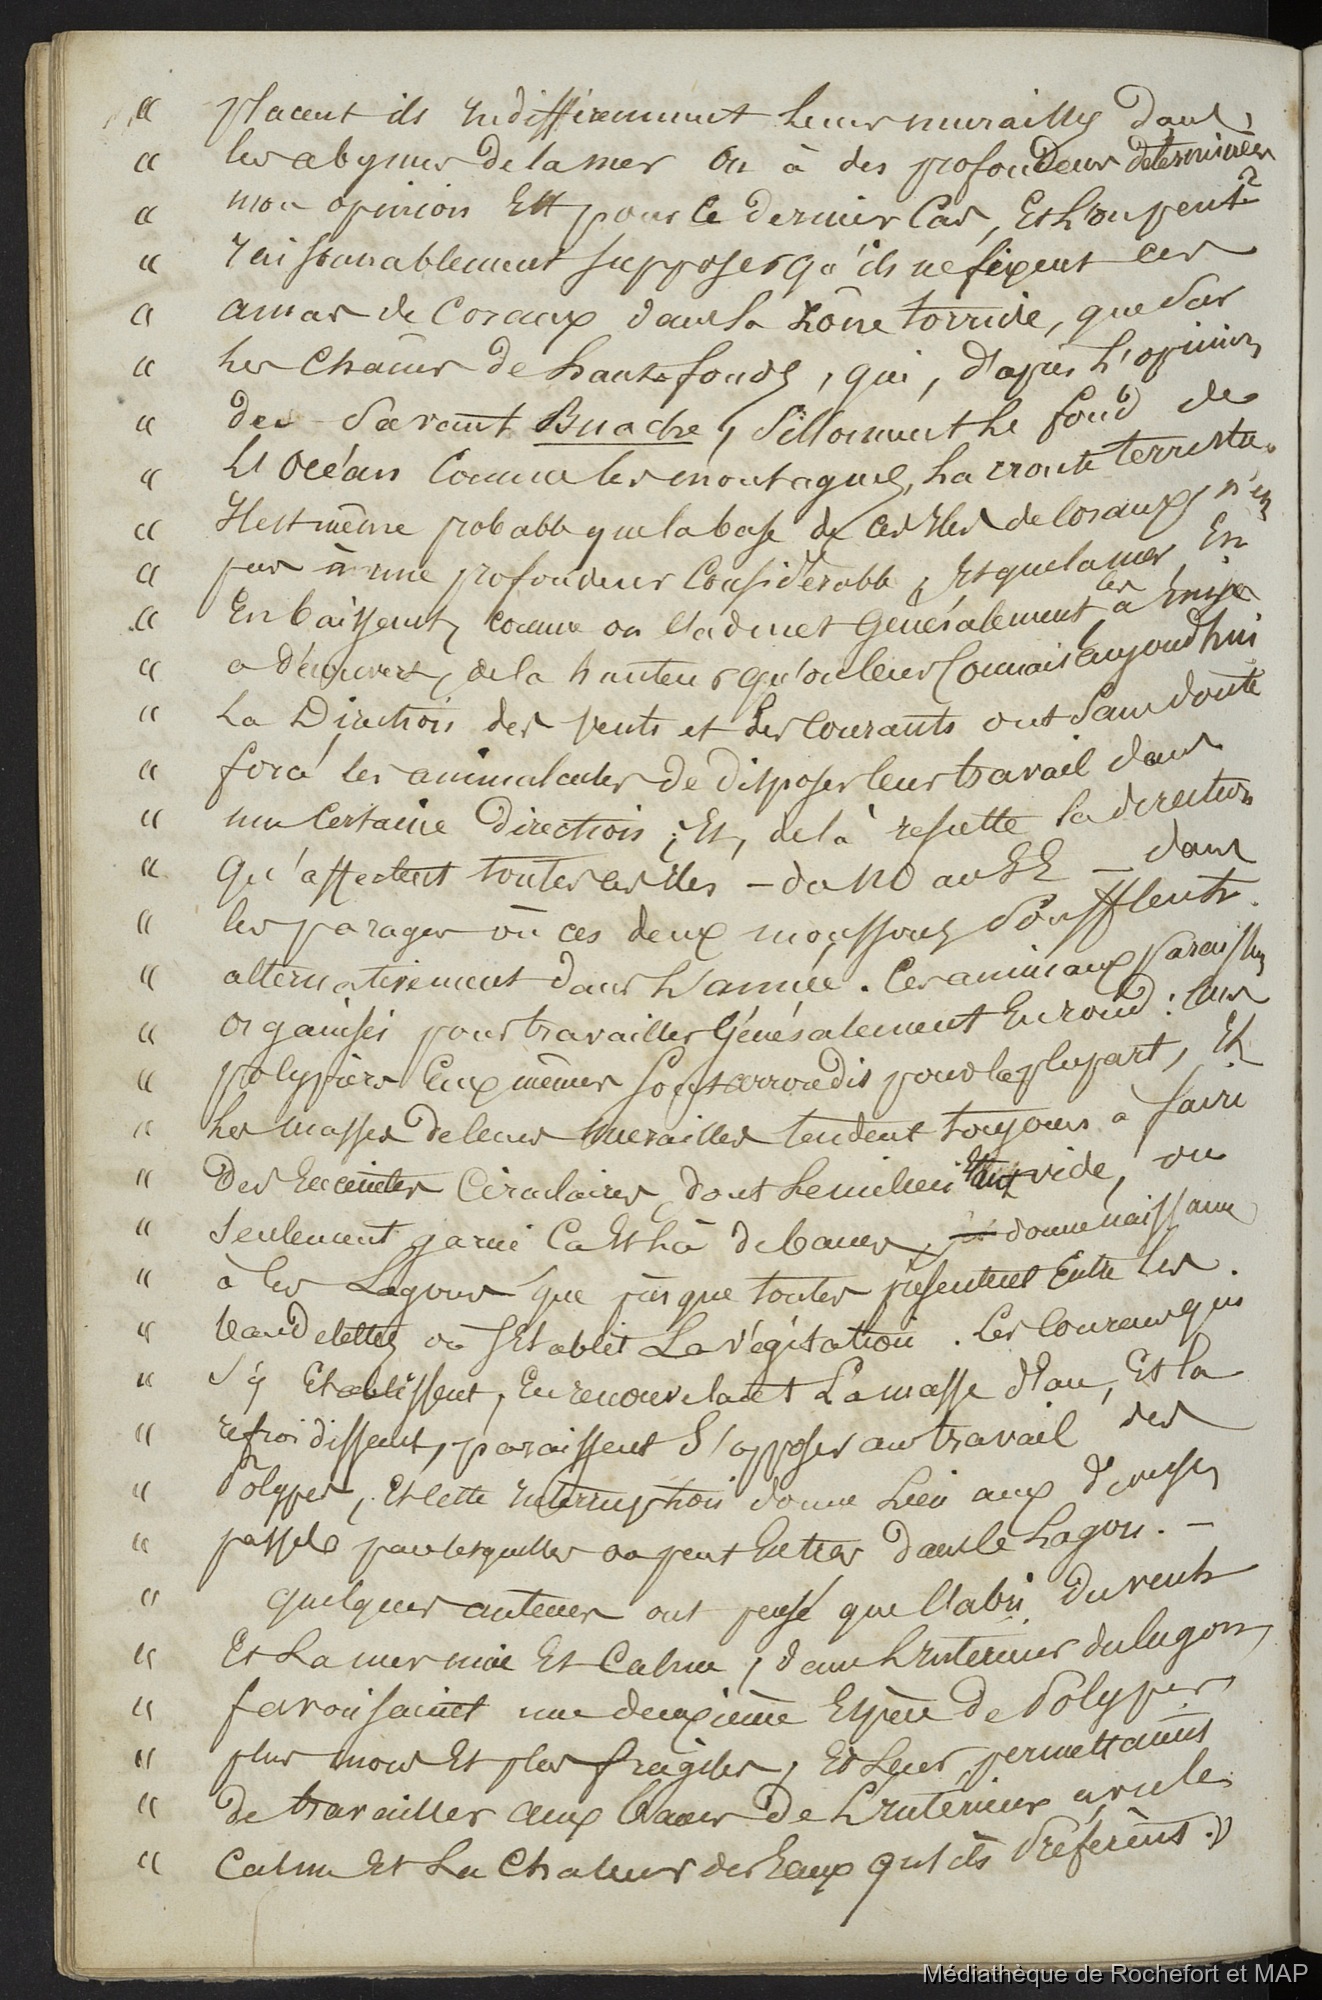 « placent ils indifféremment leurs murailles dans
« les abymes de la mer ou à des profondeurs déterminées
« mon opinion Est pour le dernier Cas, Et l'on peut ?
« raisonnablement supposer qu'ils ne fixent ces
« amas de Coraux dans la Zône torride, que sur
« les chaînes de hauts fonds, qui, d'après l'opinion
« des savant Buache, sillonnent le fond de
« l'Océan Comme les montagnes, la croute terrestre.
« Il est même probable que la base de ces Iles de Coraux n'est
« pas à une profondeur Considérable, Et que la mer En
« En baissent, comme on l'admet Généralement les a mises
« a découvert, de la hauteur qu'on leur Connais aujourd'hui
« La Direction des vents et des Courants ont sans doute
« forcé les animalcules de disposer leur travail dans
« une Certaine Direction ; Et, de là resulte la direction
« qu'affectent toutes ces Iles – du NO au SE – dans
« les parages où ces deux moussons soufflent
« alternativement dans l'année. Ces animaux paraissent
« organisés pour travailler Généralement En rond : leurs
« polypiers Eux mêmes sont arrondis pour la plupart, Et
« les masses de leurs murailles tendent toujours à faire
« Des Enceintes Circulaires, dont le milieu Etant vide, ou
« seulement garni Ca Et là de bancs, donne naissance
« à les Lagons que presque toutes présentent Entre les
« bandelettes où s'Etablit La végétation. Les Coureurs qui
« s'y Etablissent, En renouvelant La masse d'Eau, Et la
« refroidissent, paraissent s'opposer au travail des
« Polypes, Et cette interruption donne Lieu aux diverses
« passes par lesquelles on peut Entrer dans le Lagon. –
« quelques auteurs ont pensé que l'abri du vent
« Et La mer unie Et Calme, dans l'intérieur du lagon,
« favorisaient une deuxième Espèce de Polypes
« plus mous Et plus fragiles, Et Leur permettaient
« de travailler aux bancs de l'intérieur avec le
« Calme Et La Chaleur des Eaux qu'ils Préfèrent. »
Médiathèque de Rochefort et MAP